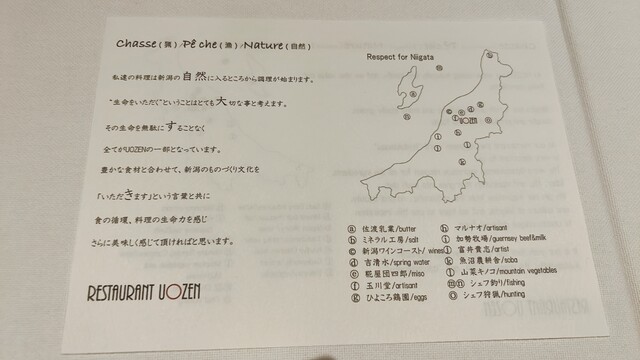 Chasse(猟)/Pêche(漁)/Nature(自然)
私達の料理は新潟の自然に入るところから調理が始まります。
"生命をいただく"ということはとても大切な事と考えます。
その生命を無駄にすることなく
全てがUOZENの一部となっています。
豊かな食材と合わせて、新潟のものづくり文化を
「いただきます」という言葉と共に
食の循環、料理の生命力を感じ
さらに美味しく感じて頂ければと思います。
RESTAURANT UOZEN
Respect for Niigata
UOZEN
ⓐ 佐渡乳業/butter
ⓑ ミネラル工房/salt
ⓒ 新潟ワインコースト/wines
ⓓ 吉清水/spring water
ⓔ 糀屋団四郎/miso
ⓕ 玉川堂/artisant
ⓖ ひよころ鶏園/eggs
ⓗ マルナオ/artisant
ⓘ 加勢牧場/guernsey beef&milk
ⓘ 富井貴志/artist
ⓚ 魚沼農耕舎/soba
ⓛ 山菜キノコ/mountain vegetables
ⓜⓝ シェフ釣り/fishing
ⓞ シェフ狩猟/hunting
RESTAURANT UOZEN